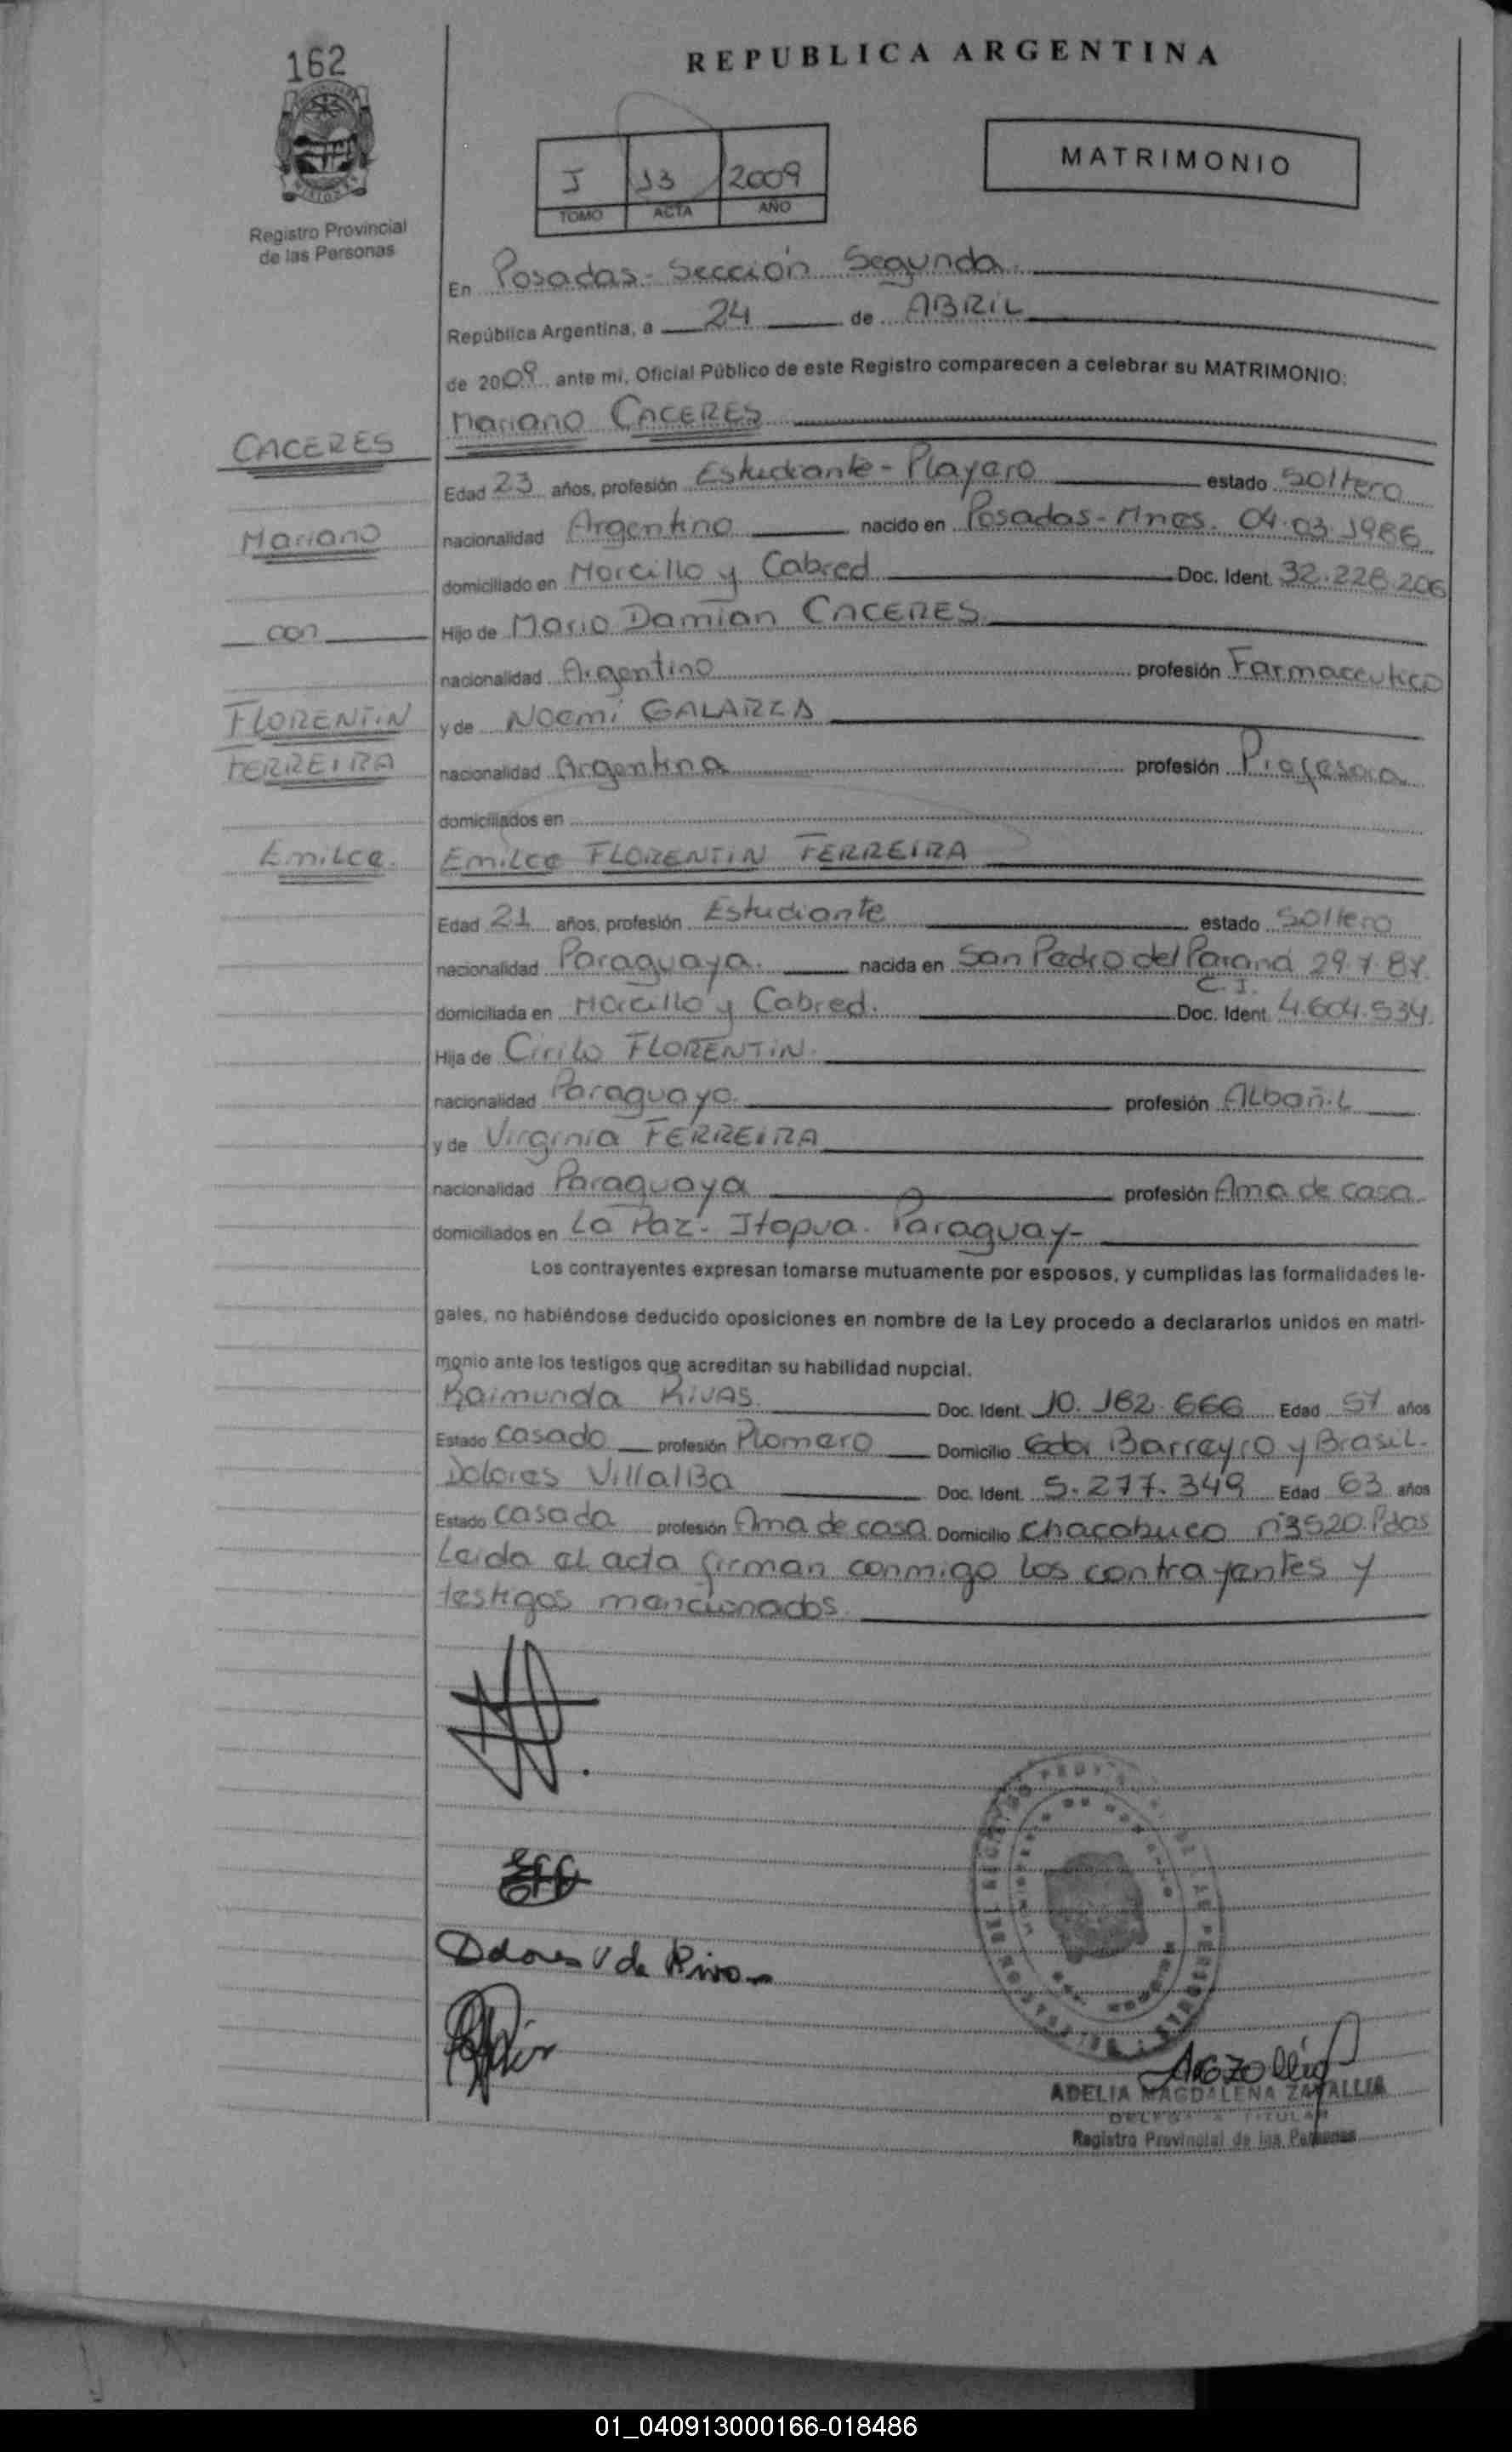 162
REPUBLICA ARGENTINA
MATRIMONIO
J 13 2009
TOMO ACTA AÑO
Registro Provincial
de las Personas
En Posadas - Sección Segunda
República Argentina, a 24 de ABRIL
de 2009 ante mi, Oficial Público de este Registro comparecen a celebrar su MATRIMONIO:
Mariano CACERES
CACERES
Edad 23 años, profesión Estudiante - Playero estado Soltero
Mariano
nacionalidad Argentino nacido en Posadas - Mnes. 04.03.1986
domiciliado en Morcillo y Cabred Doc. Ident. 32.228.206
con
Hijo de Mario Damian CACERES
nacionalidad Argentino profesión Farmaceutico
FLORENTIN
y de Noemi GALARZA
FERREIRA
nacionalidad Argentina profesión Profesora
domiciliados en
Emilce
Emilce FLORENTIN FERREIRA
Edad 21 años, profesión Estudiante estado Soltero
nacionalidad Paraguaya. nacida en San Pedro del Paraná 29.7.87.
C.I.
domiciliada en Morcillo y Cabred. Doc. Ident. 4.604.534
Hija de Cirilo FLORENTIN.
nacionalidad Paraguayo. profesión Albañil
y de Virginia FERREIRA
nacionalidad Paraguaya profesión Ama de casa
domiciliados en La Paz - Itapua - Paraguay-
Los contrayentes expresan tomarse mutuamente por esposos, y cumplidas las formalidades le-
gales, no habiéndose deducido oposiciones en nombre de la Ley procedo a declararlos unidos en matri-
monio ante los testigos que acreditan su habilidad nupcial.
Raimundo RIVAS Doc. Ident. 10.162.666 Edad 57 años
Estado Casado profesión Plomero Domicilio Gdor Barreyro y Brasil.
Dolores VillalBa Doc. Ident. 5.277.349 Edad 63 años
Estado Casada profesión Ama de casa Domicilio Chacabuco n°3520 Pdas
Leida el acta firman conmigo los contrayentes y
testigos mencionados.
Dolores V de Rivas
ADELIA MAGDALENA ZAVALLIA
DELEGADA TITULAR
Registro Provincial de las Personas
01_040913000166-018486